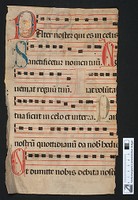 Pater noster qui es in celis
Sanctificetur nomen tuum
ueniat regnum tuum uoluntas
tua sicut in celo et in terra
nostrum quotidianum da nobis hodie
Et dimitte nobis debita nostra